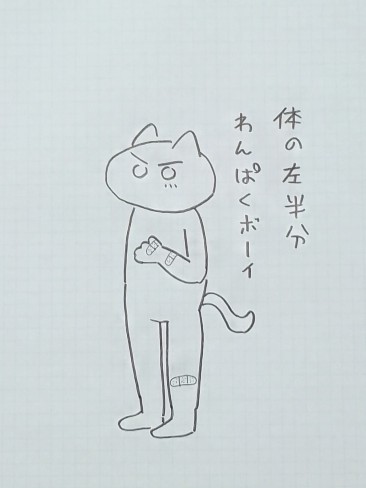 体の左半分
わんぱくボーイ